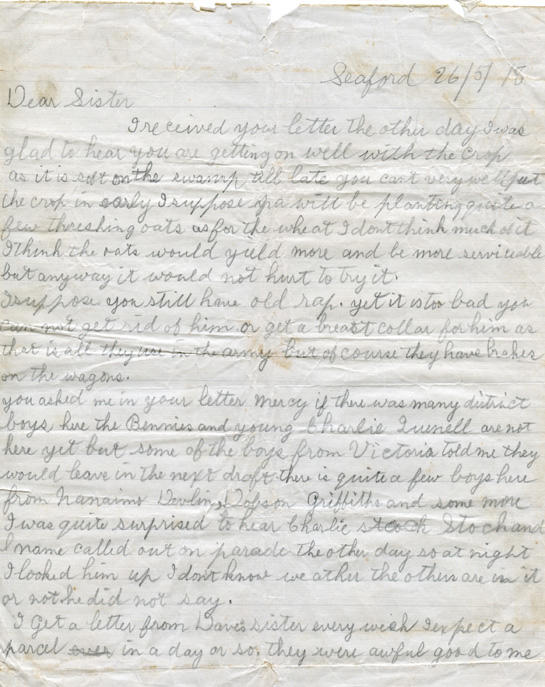 Seaford 26/5/18
Dear Sister
I received your letter the other day I was
glad to hear you are getting on well with the crop
as it is on the swamp till late you cant very well put
the crop in early I suppose pa will be planting quite a
few threshing oats as for the wheat I dont think much of it
I think the oats would yield more and be more serviceable
but anyway it would not hurt to try it.
I suppose you still have old rap. yet it is too bad you
can not get rid of him or get a breast collar for him as
that is all they use in the army but of course they have brakes
on the wagons.
you asked me in your letter Mercy if there was many district
boys, here the Bennies and young Charlie are not
here yet but some of the boys from Victoria told me they
would leave in the next draft there is quite a few boys here
from Nanaimo Devlin, Dobson Griffiths and some more
I was quite surprised to hear Charlie stock Stochand
name called out on parade the other day so at night
I looked him up I dont know weather the others are in it
or not he did not say.
I Get a letter from Daves sister every wick I expect a
parcel over in a day or so, they were awful good to me